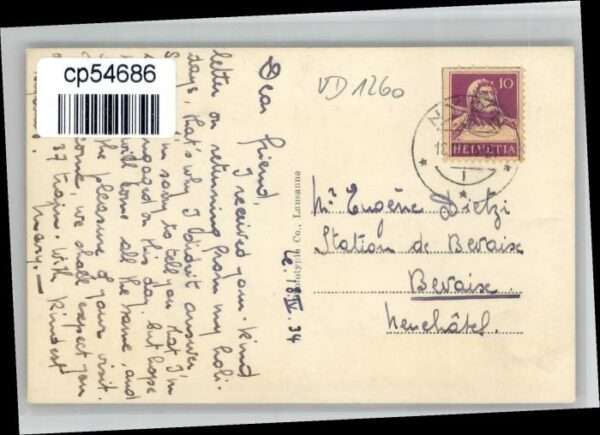 cp54686
VD1260
10
HELVETIA
Dear friend,
I received your kind
letter on returning from my holi-
days, that's why I didn't answer
I'm sorry to tell you that I'm
engaged on this day. but hope
will come all the same and
the pleasure of your visit.
come, we shall expect you
37 train. with kindest
Mary.—
Co., Lausanne
Le. 18 IV. 34
Mr Eugène Dietzi
Station de Bevaix
Bevaix.
Neuchâtel.